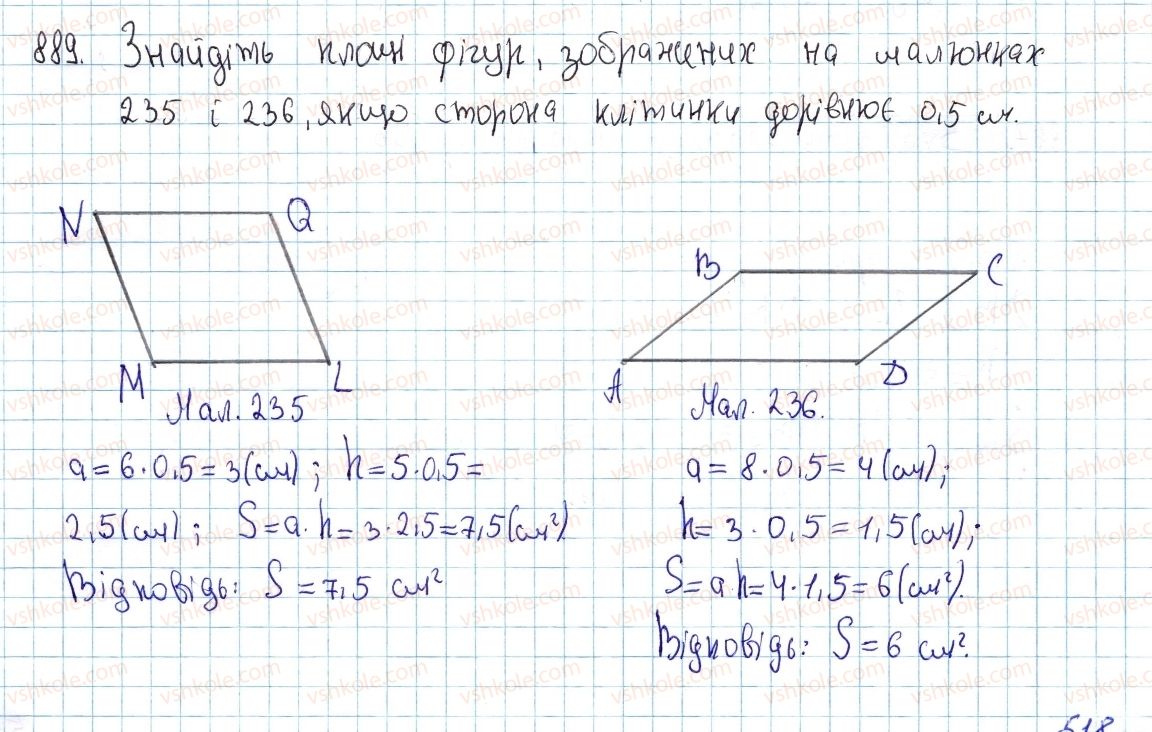 889. Знайдіть площі фігур, зображених на малюнках
235 і 236, якщо сторона клітинки дорівнює 0,5 см.
N Q
B C
M L
A D
Мал. 235
Мал. 236.
a = 6 · 0,5 = 3 (см); h = 5 · 0,5 =
2,5 (см); S = a · h = 3 · 2,5 = 7,5 (см²)
Відповідь: S = 7,5 см²
a = 8 · 0,5 = 4 (см);
h = 3 · 0,5 = 1,5 (см);
S = a h = 4 · 1,5 = 6 (см²).
Відповідь: S = 6 см².
518